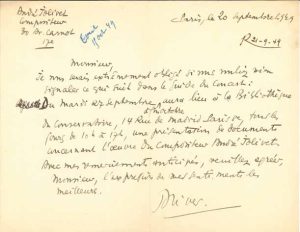 André Jolivet
Compositeur
Bd. Carnot
Paris, le 20 septembre 1949
R 21-9-49
Monsieur,
Je vous serais extrêmement obligé si vous vouliez bien
signaler ce qui suit dans le Guide du Concert.
Du mardi 27 septembre, aura lieu à la Bibliothèque
du Conservatoire, 14 Rue de Madrid Paris, tous les
jours de 10h à 12h, une présentation de documents
concernant l'œuvre du Compositeur André Jolivet.
Avec mes remerciements anticipés, veuillez agréer,
Monsieur, l'expression de mes sentiments les
meilleurs.